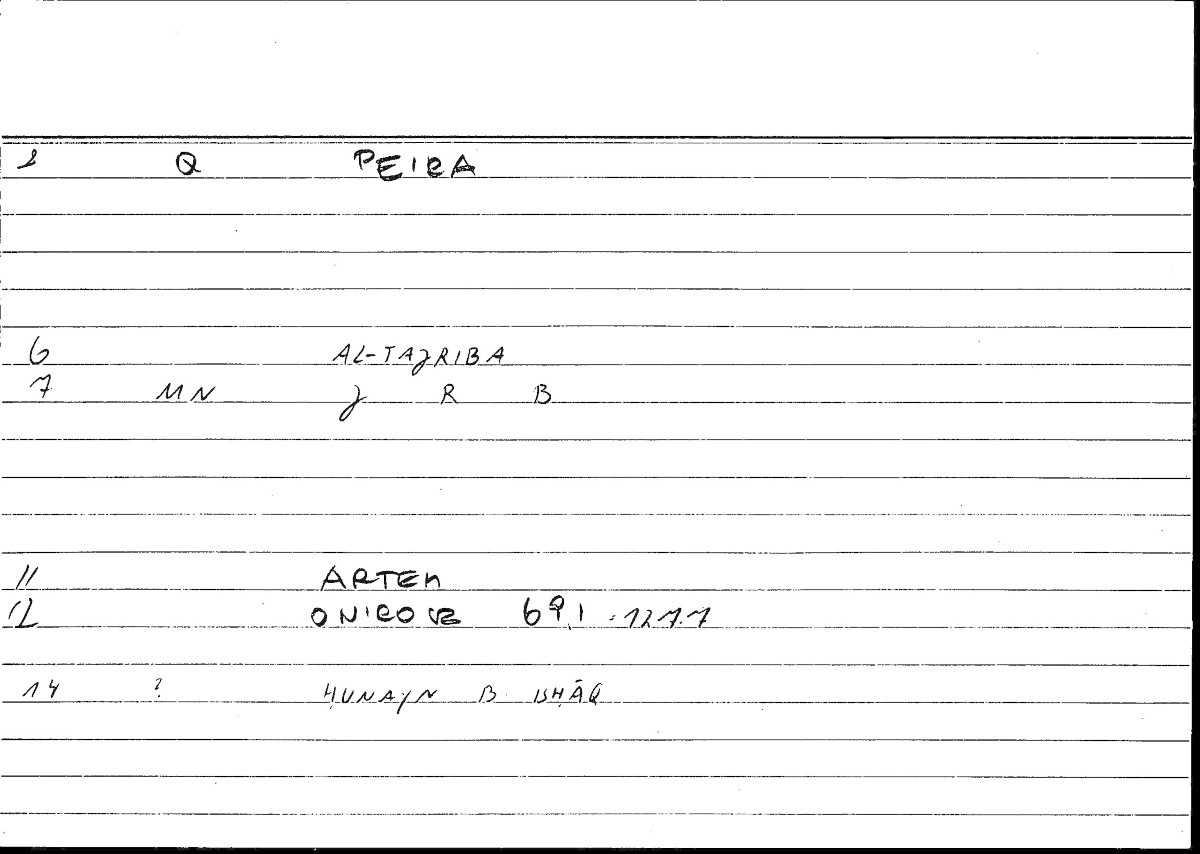 1 Q PEIRA
6 AL-TAJRIBA
7 MN J R B
11 ARTEM
12 ONIROCR 69,1 : 127.7
14 ? ḤUNAYN B ISḤĀQ